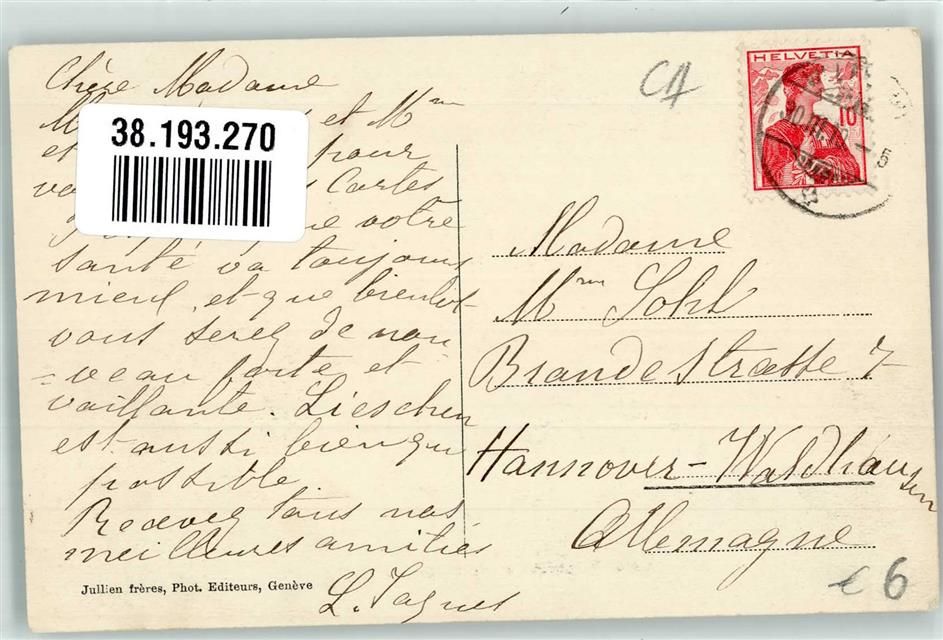 Chère Madame
et Mme
et pour
Cartes
votre
santé va toujours
mieux, et que bientôt
vous serez de nou
=veau forte et
vaillante. Lieschen
est aussi bien que
possible.
Recevez tous nos
meilleures amitiés
L.
38.193.270
Jullien frères, Phot. Editeurs, Genève
C4
HELVETIA
10
Madame
Mme Sohl
Brandestrasse 7
Hannover-Waldhausen
Allemagne
€ 6